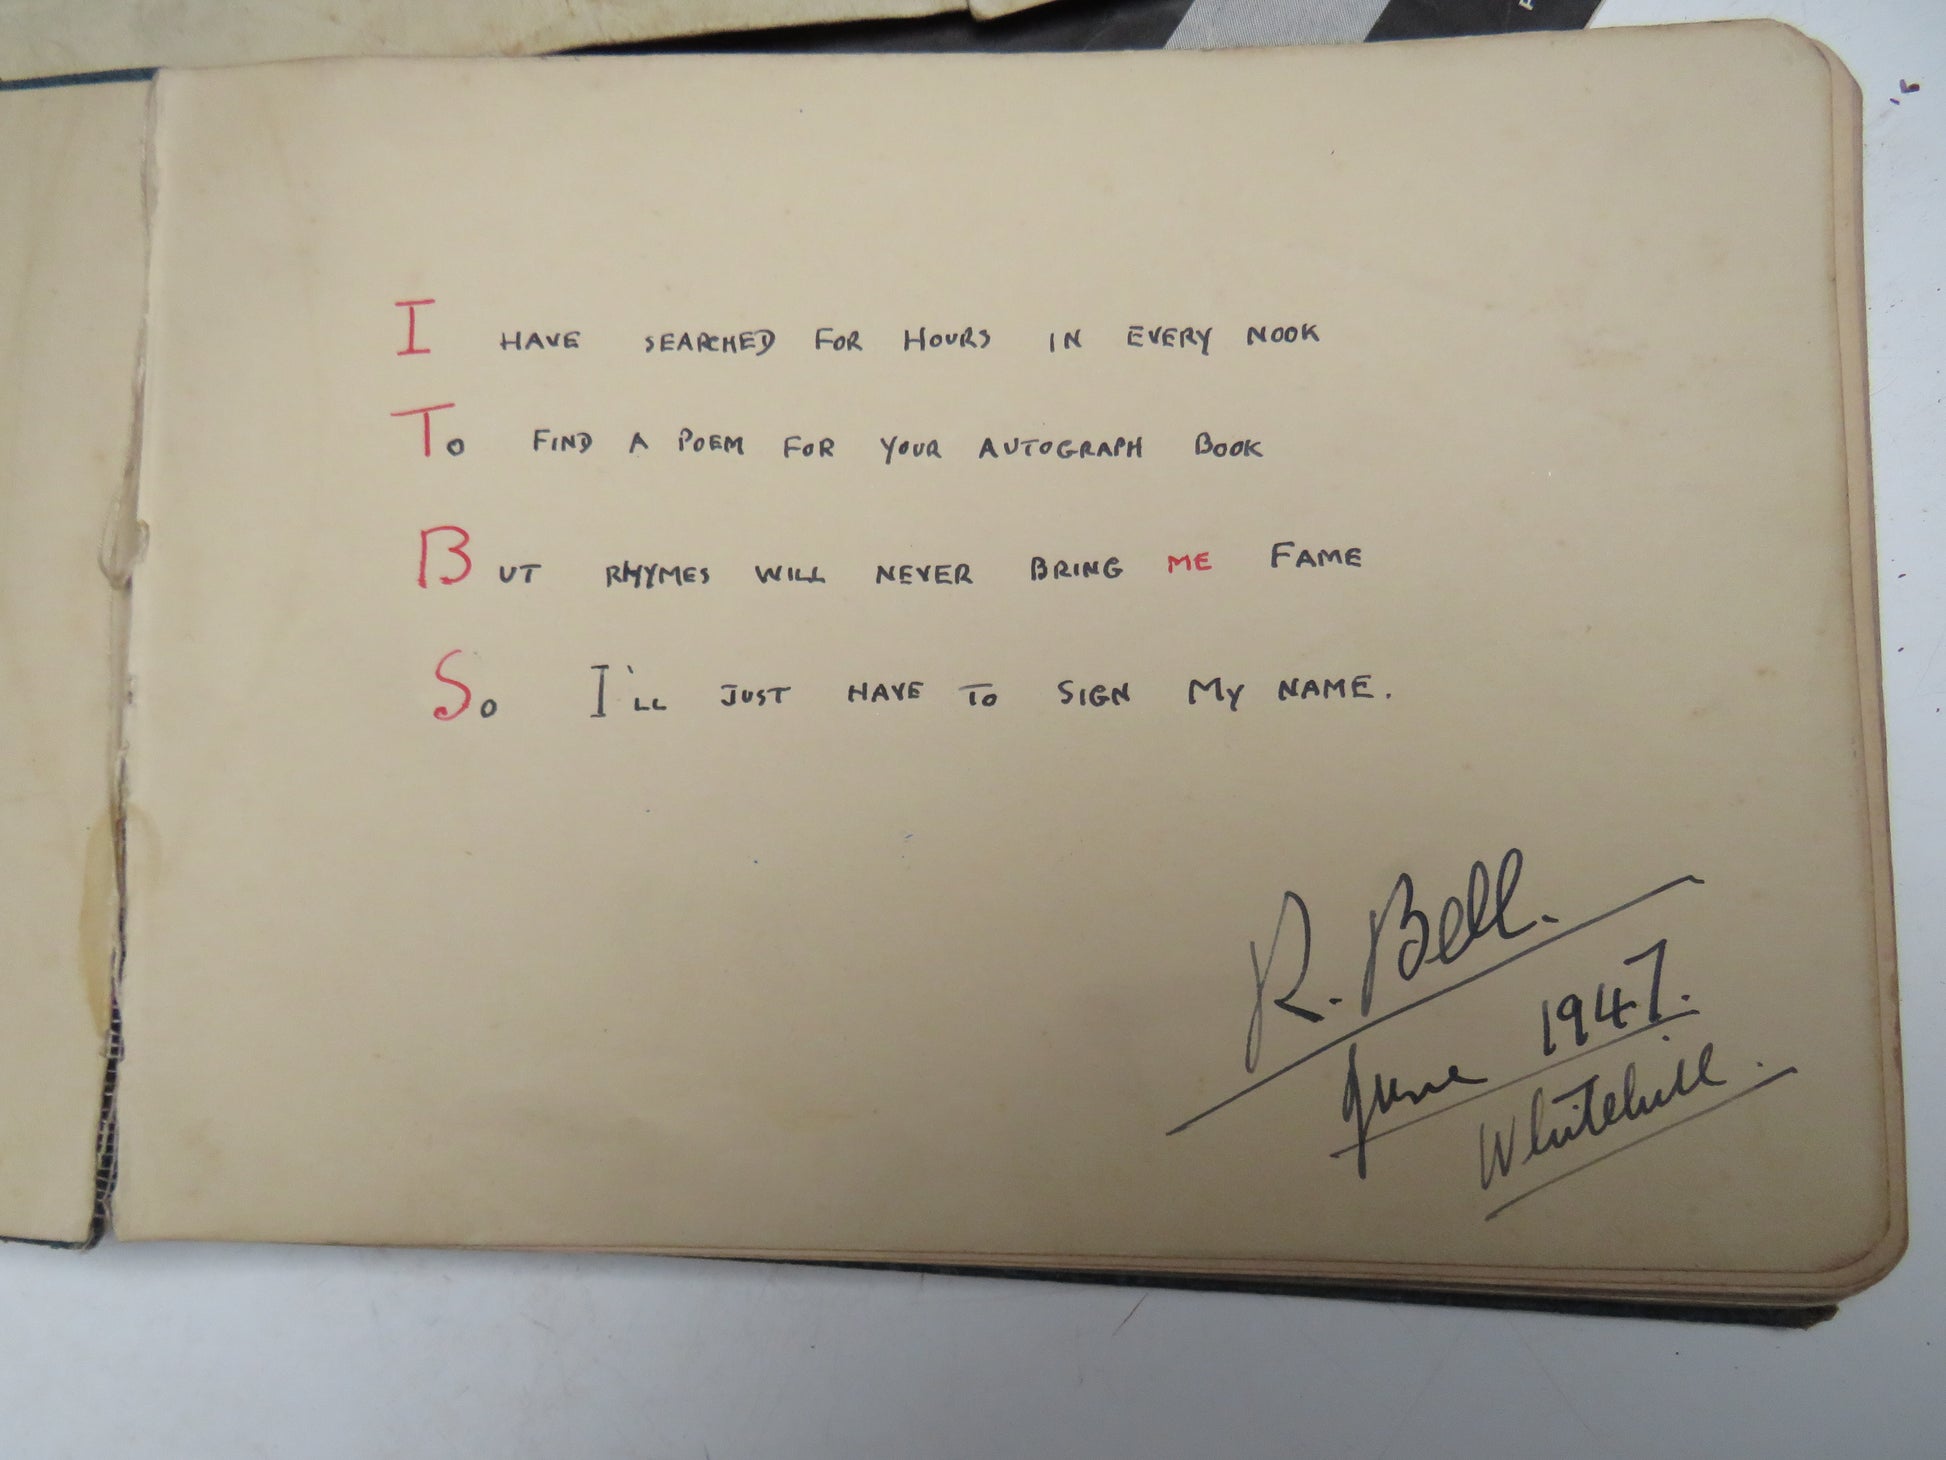 I HAVE SEARCHED FOR HOURS IN EVERY NOOK
To FIND A POEM FOR YOUR AUTOGRAPH BOOK
BUT RHYMES WILL NEVER BRING ME FAME
So I'LL JUST HAVE TO SIGN MY NAME.
R. Bell.
June 1947.
Whitehill.